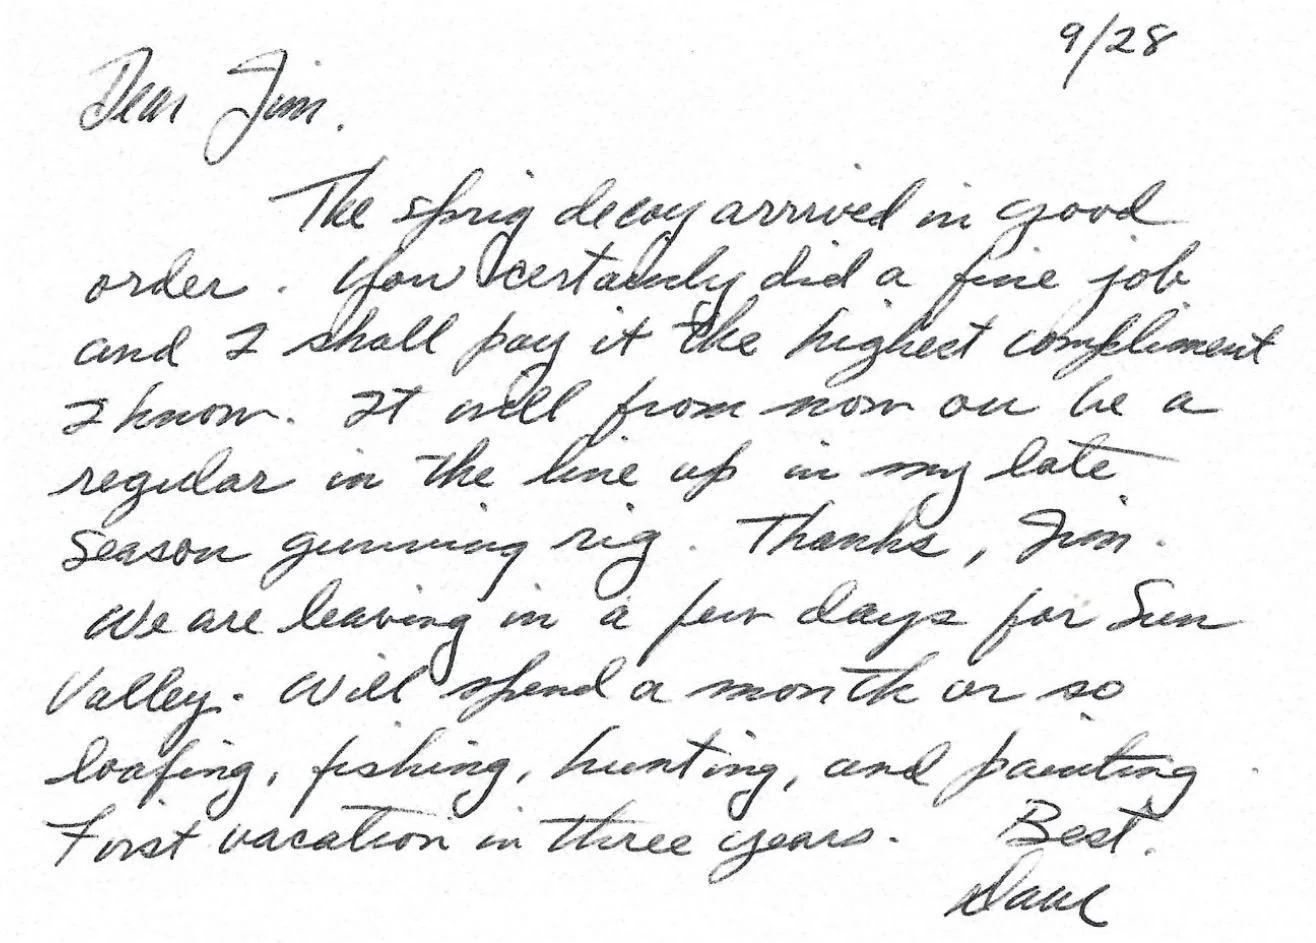 9/28
Dear Jim.
The sprig decoy arrived in good
order. You certainly did a fine job
and I shall pay it the highest compliment
I know. It will from now on be a
regular in the line up in my late
season gunning rig. Thanks, Jim.
We are leaving in a few days for Sun
Valley. Will spend a month or so
loafing, fishing, hunting, and painting
First vacation in three years. Best.
Dave